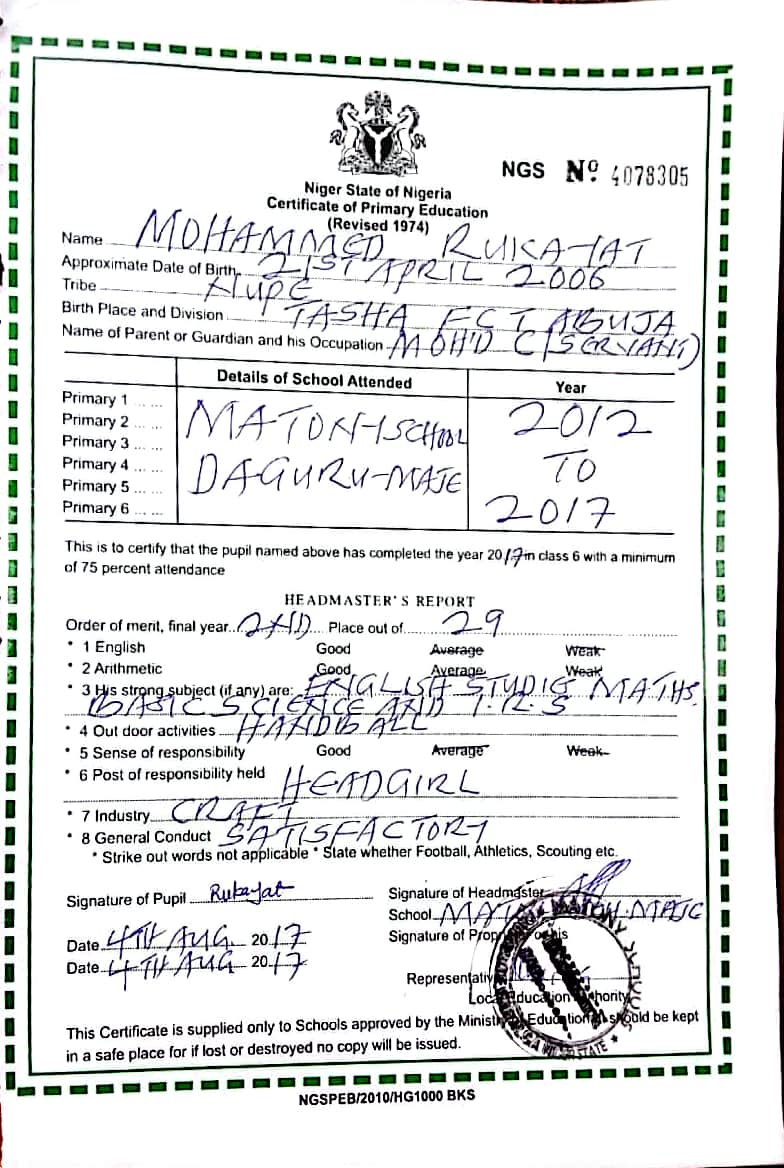 NGS Nº 4078305
Niger State of Nigeria
Certificate of Primary Education
(Revised 1974)
Name MOHAMMED RUKAYAT
Approximate Date of Birth 21ST APRIL 2006
Tribe Nupe
Birth Place and Division TASHA FCT ABUJA
Name of Parent or Guardian and his Occupation MOH'D C(SERVANT)
Details of School Attended Year
Primary 1 ... ...
Primary 2 ... ... MATONY SCHOOL 2012
Primary 3 ... ...
Primary 4 ... ... DAGURU-MAJE TO
Primary 5 ... ...
Primary 6 ... ... 2017
This is to certify that the pupil named above has completed the year 2017 in class 6 with a minimum
of 75 percent attendance
HEADMASTER'S REPORT
Order of merit, final year..2ND... Place out of 29
* 1 English Good Average Weak
* 2 Arithmetic Good Average Weak
* 3 His strong subject (if any) are: ENGLISH STUDIE MATHS,
BASIC SCIENCE AND I.R.S
* 4 Out door activities HANDBALL
* 5 Sense of responsibility Good Average Weak
* 6 Post of responsibility held HEADGIRL
* 7 Industry CRAFT
* 8 General Conduct SATISFACTORY
* Strike out words not applicable * State whether Football, Athletics, Scouting etc.
Signature of Pupil Rukayat
Signature of Headmaster
School MATONY MAJE
Date 4TH AUG 2017
Signature of
Date 4TH AUG 2017
Representative
Local Education Authority
This Certificate is supplied only to Schools approved by the Ministry Education should be kept
in a safe place for if lost or destroyed no copy will be issued.
NGSPEB/2010/HG1000 BKS